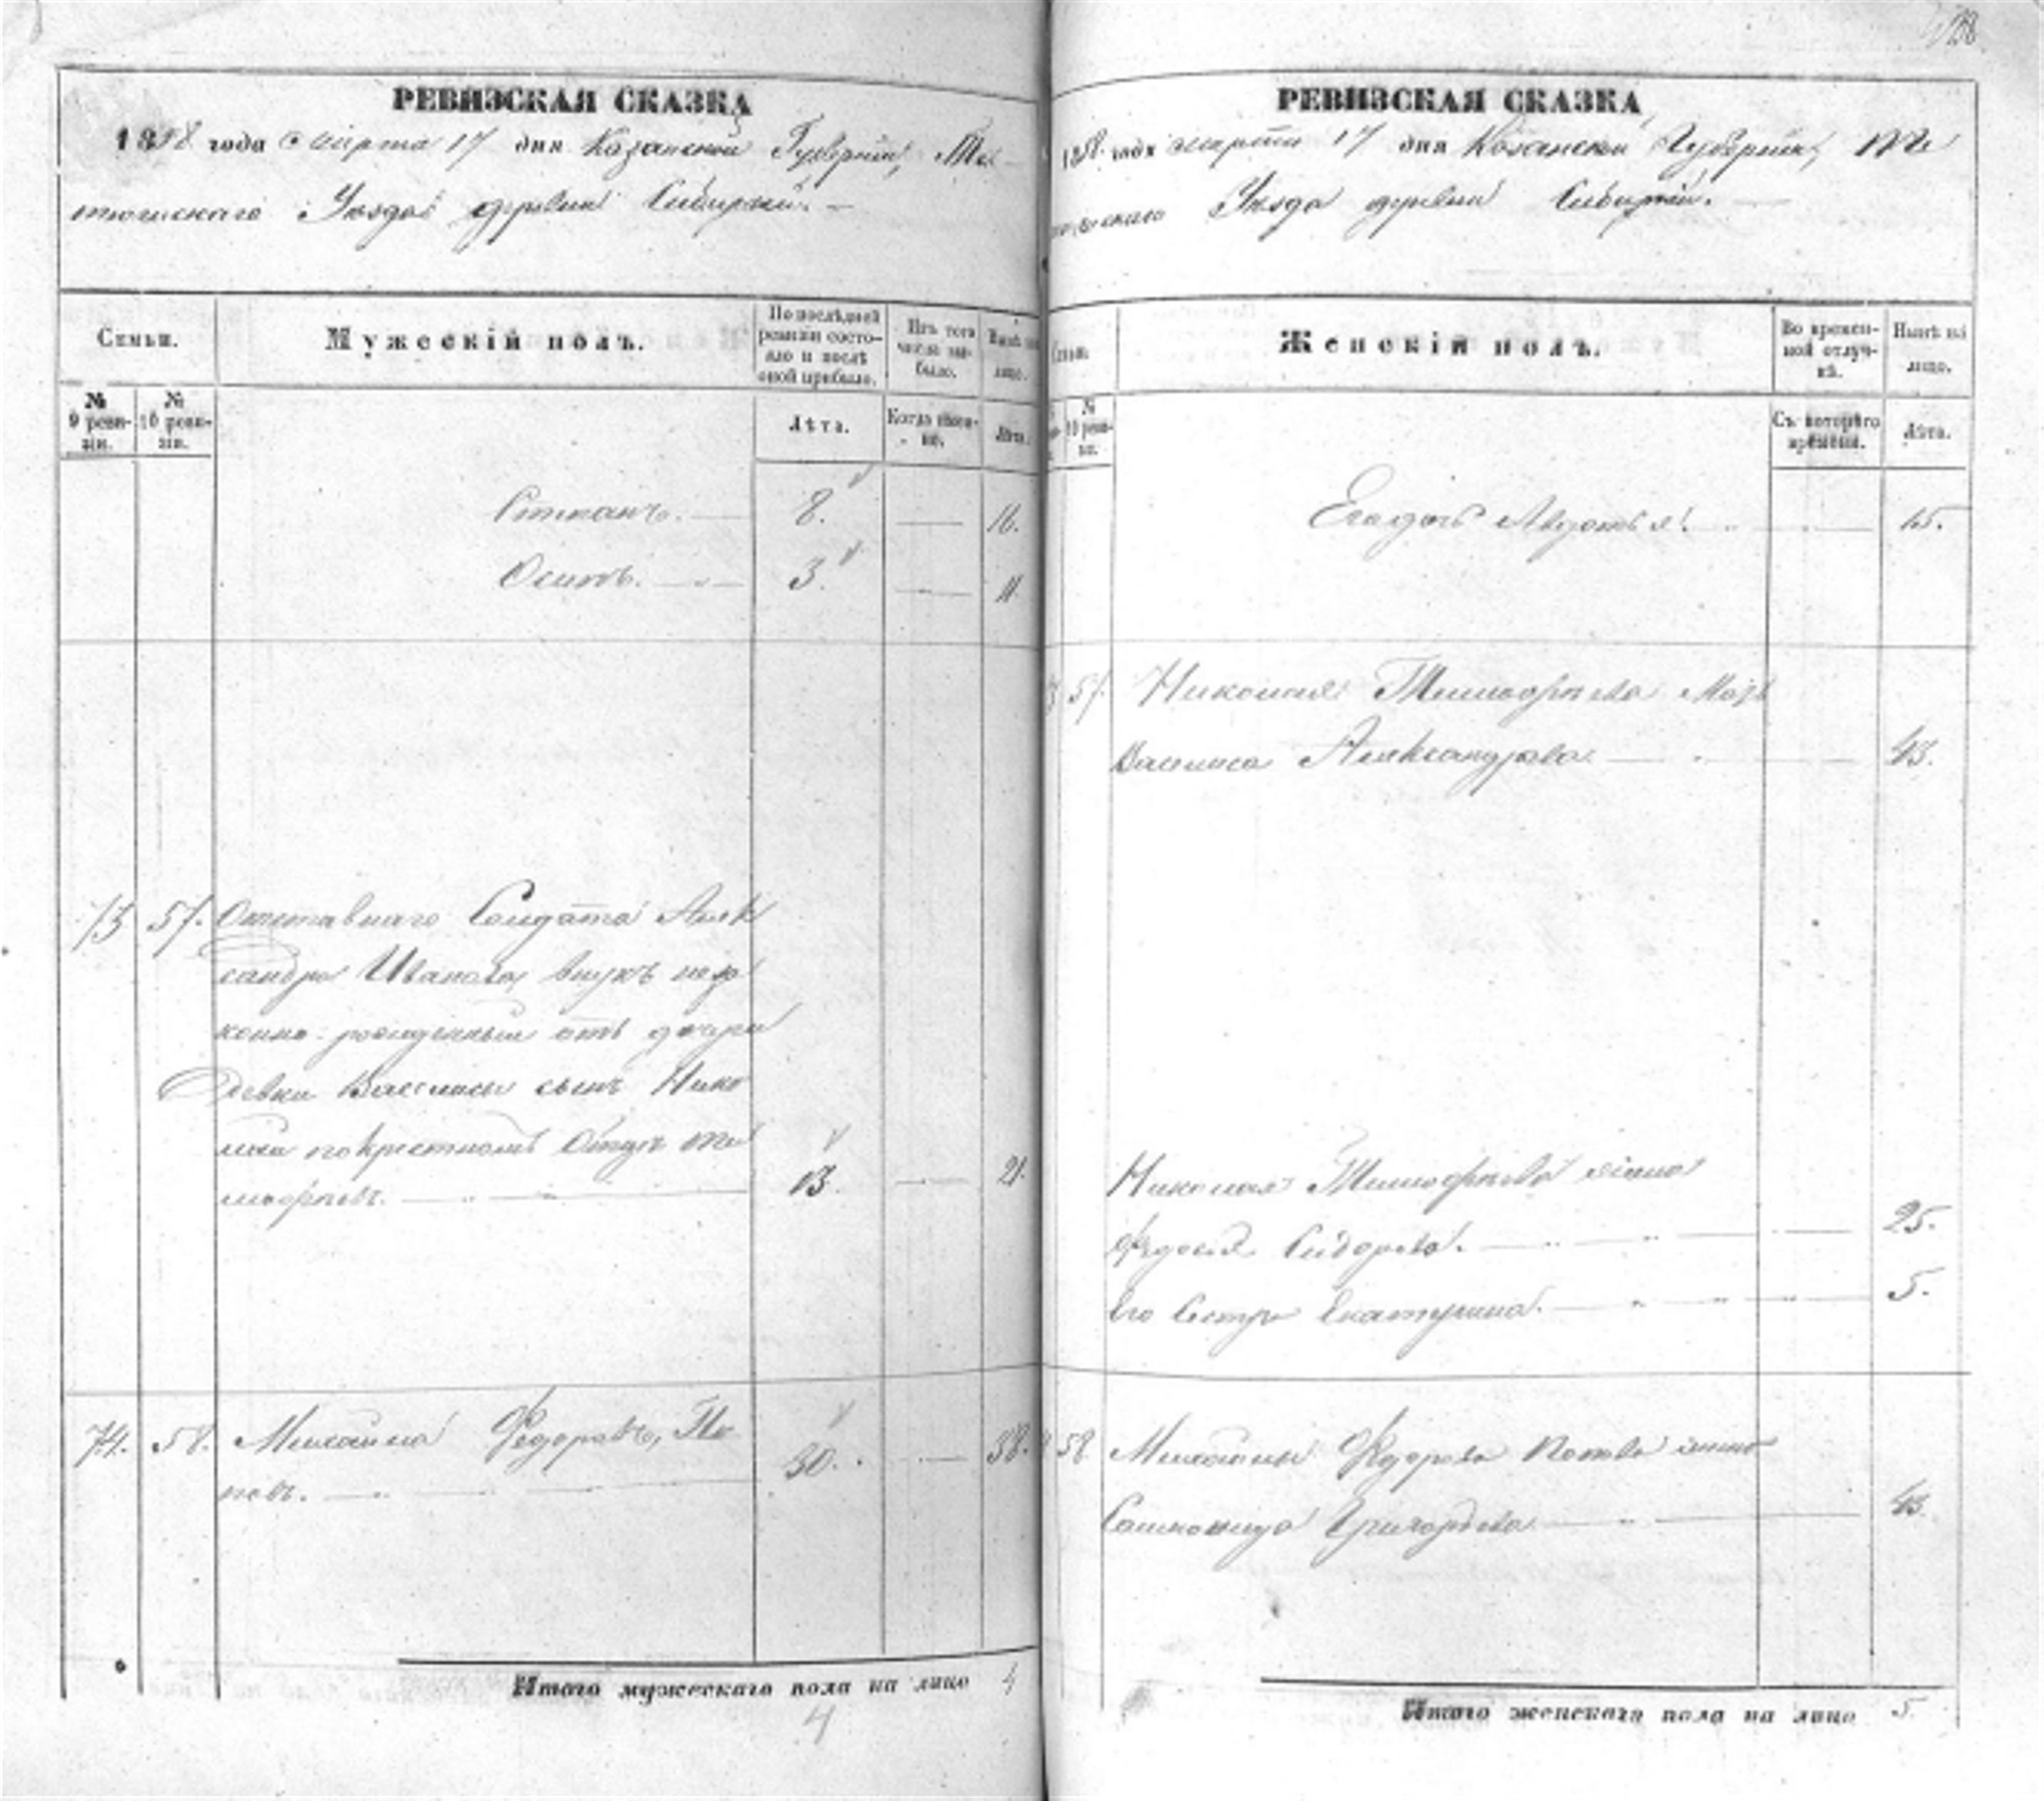 128
РЕВИЗСКАЯ СКАЗКА
1858 года Марта 17 дня Казанской Губерніи, Те-
тюшскаго Уѣзда деревни Сибирки. —
Семьи.
Мужескій полъ.
По послѣдней ревизіи состояло и послѣ оной прибыло.
Изъ того числа выбыло.
Нынѣ на лицо.
№ 9 ревизіи.
№ 10 ревизіи.
Лѣта.
Когда именно.
Лѣта.
Степанъ. — 8. — 16.
Осипъ. — 3. — 11.
73 57. Отставнаго Солдата Алек
сандра Иванова, внукъ неза
конно-рожденный отъ дочери
Девки Василисы сынъ Нико
лай по крестномъ Отцѣ Ти
мофѣевъ. — 13. — 21.
74. 58. Михайла Федоровъ, По
повъ. — 30. — 38.
Итого мужескаго пола на лицо 4
4
РЕВИЗСКАЯ СКАЗКА
1858 года Марта 17 дня Казанской Губерніи, Те
тюшскаго Уѣзда деревни Сибирки. —
Семьи.
Женскій полъ.
Во временной отлучкѣ.
Нынѣ на лицо.
№ 10 ревизіи.
Съ котораго времени.
Лѣта.
Его дочь Авдотья. — 15.
57. Николая Тимофѣева Мать
Василиса Александрова — 43.
Николая Тимофѣева жена
Федосья Сидорова. — 25.
Его Сестра Екатерина. — 5.
58 Михайлы Федорова Попова жена
Григорьева — 43.
Итого женскаго пола на лицо 5